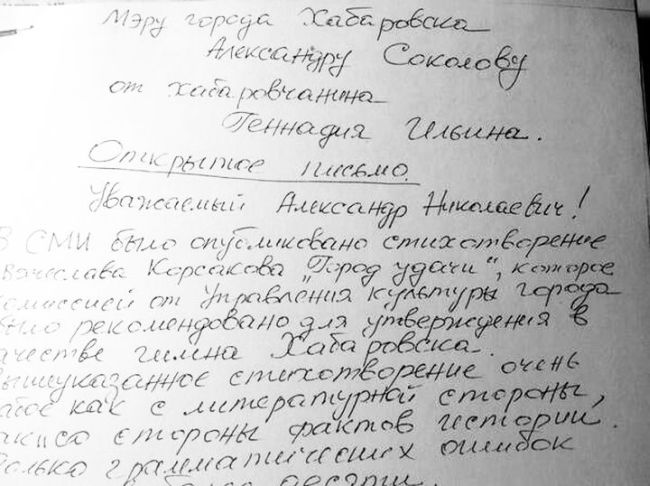 Мэру города Хабаровска
Александру Соколову
от хабаровчанина
Геннадия Ильина.
Открытое письмо.
Уважаемый Александр Николаевич!
В СМИ было опубликовано стихотворение
Вячеслава Корсакова "Город удачи", которое
комиссией от Управления культуры города
было рекомендовано для утверждения в
качестве гимна Хабаровска.
Вышеуказанное стихотворение очень
как с литературной стороны,
со стороны фактов истории.
грамматических ошибок
десяти.